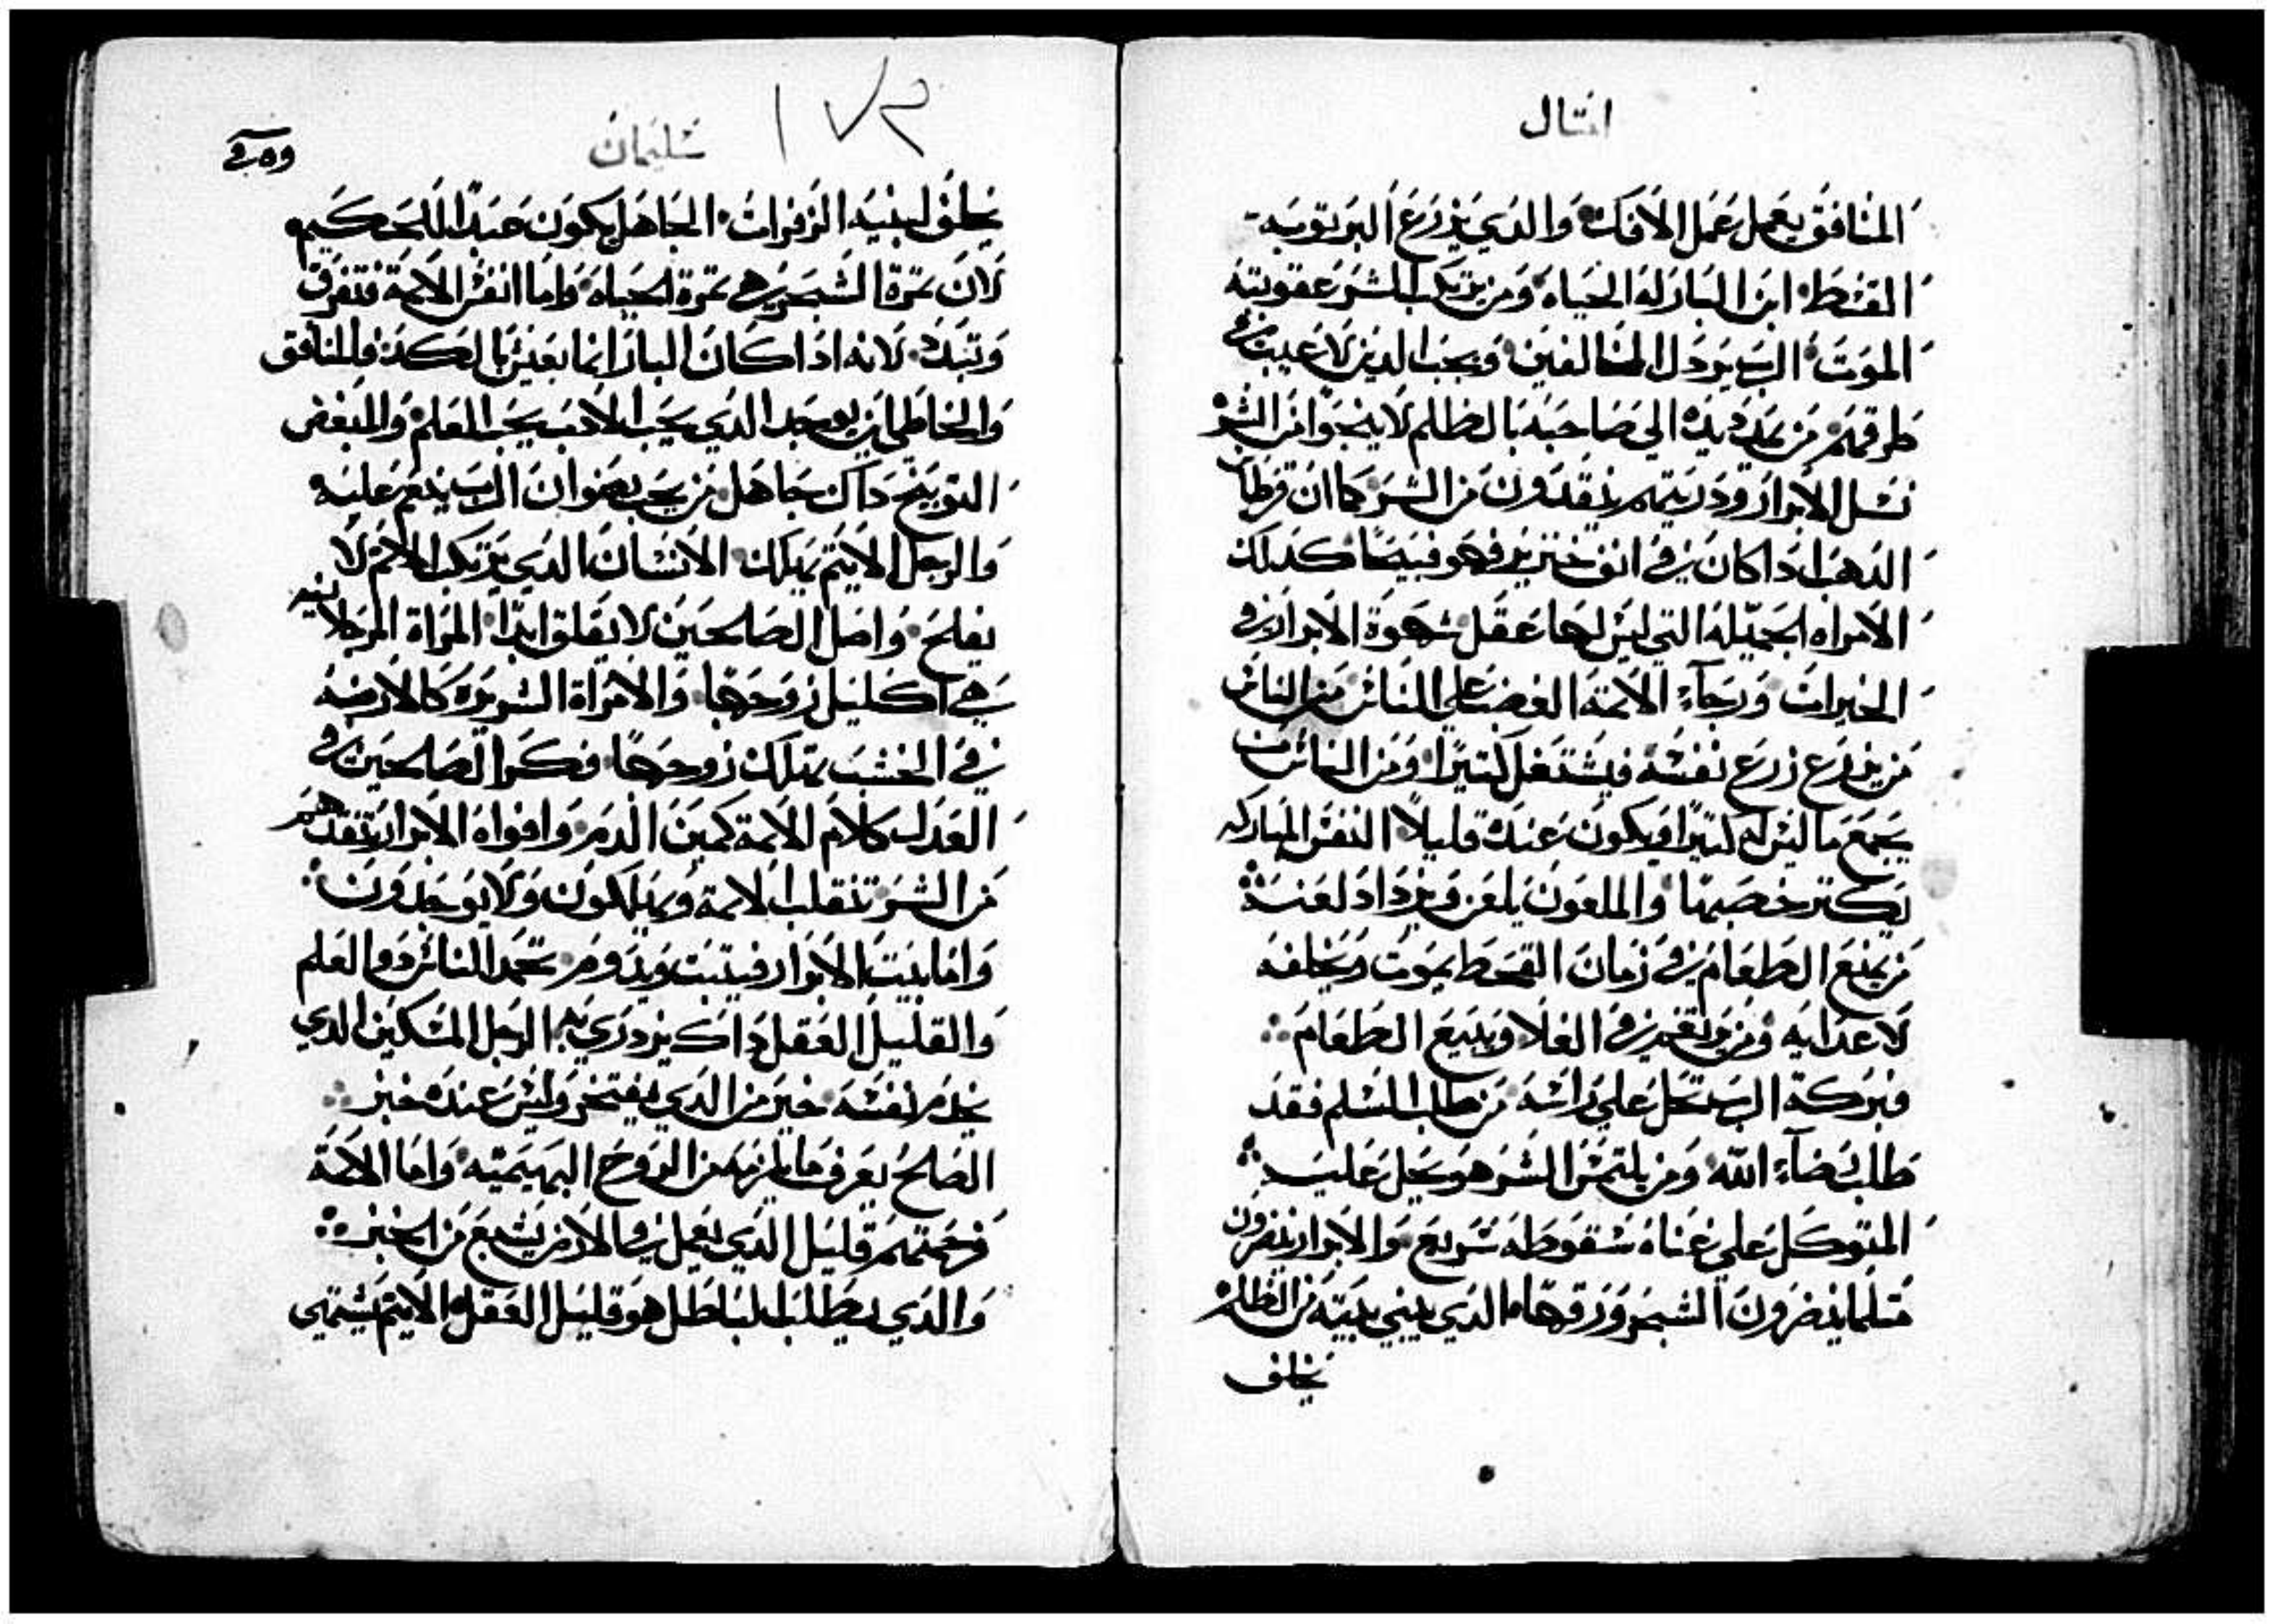 امتال
المنافق يعمل عمل الافك والدي يزرع البر توبته
القسط ابن البار له الحياه ومن يرتكب الشر عقوبته
الموت الرب يردل المخالفين ويحب الدين لا عيب في
طرقهم من يمد يده الي صاحبه بالظلم لا ينجوا من الشر
نسل الابرار ودريتهم ينقدون من الشر كما ان قرطا
الدهب ادا كان في انف خنزير فهو قبيحا كدلك
الامراه الجميله التي ليس لها عقل شهوة الابرار في
الخيرات ورجاء الاتمة الغضب علي الناس من الناس
من يزرع زرع نفسه فيستغل كتيرا ومن الناس من
يجمع ما ليس له كتيرا ويكون عنده قليلا النفس المباركه
يكتر خصبها والملعون يلعن ويزداد لعنه
من يمنع الطعام في زمان القحط يموت ويخلفه
لاعدايه ومن في الغلا ويبيع الطعام
فبركة الرب تحل علي راسه من طلب السلم فقد
طلب رضاء الله ومن يلتمس الشر هو يحل عليه
المتوكل علي غناه سقوطه سريع والابرار ينضرون
متلما ينضرون الشجر وورقها الدي يبني بيته من الظلم
يخلف
١٧٢
سليمان
يخلف لبنيه الزفرات الجاهل يكون عبدا للحكيم
لان تمرة الشجر هي تمرة الحياه واما انفس الاتمة فتفرق
وتبدد لانه ادا كان البار انما يعيش بالكد فالمنافق
والخاطي اين يوجد الدي يحب الادب يحب العلم والمبغض
التوبيخ داك جاهل من يحب رضوان الرب ينعم عليه
والرجل الاتيم يهلك الانسان الدي يرتكب الاتم لا
يفلح واصل الصالحين لا يقلق ابدا المراة المرجلانيه
هي اكليل زوجها والامراة الشريره كالارضه
في الخشب تهلك زوجها فكر الصالحين في
العدل كلام الاتمة كمين الدم وافواه الابرار تنقدهم
من الشر تنقلب الاتمة ويهلكون ولا يوجدون
واما بيت الابرار فيتبت ويدوم تحمد الناس دو العلم
والقليل العقل داك يزدري به الرجل المسكين الدي
يخدم نفسه خير من الدي يفتخر وليس عنده خبز
الصالح يعرف ما يلزمه من الروح البهيميه واما الاتمة
فرحمتهم قليل الدي يعمل في الارض يشبع من الخبز
والدي يطلب الباطل هو قليل العقل الاتيم يشتهي